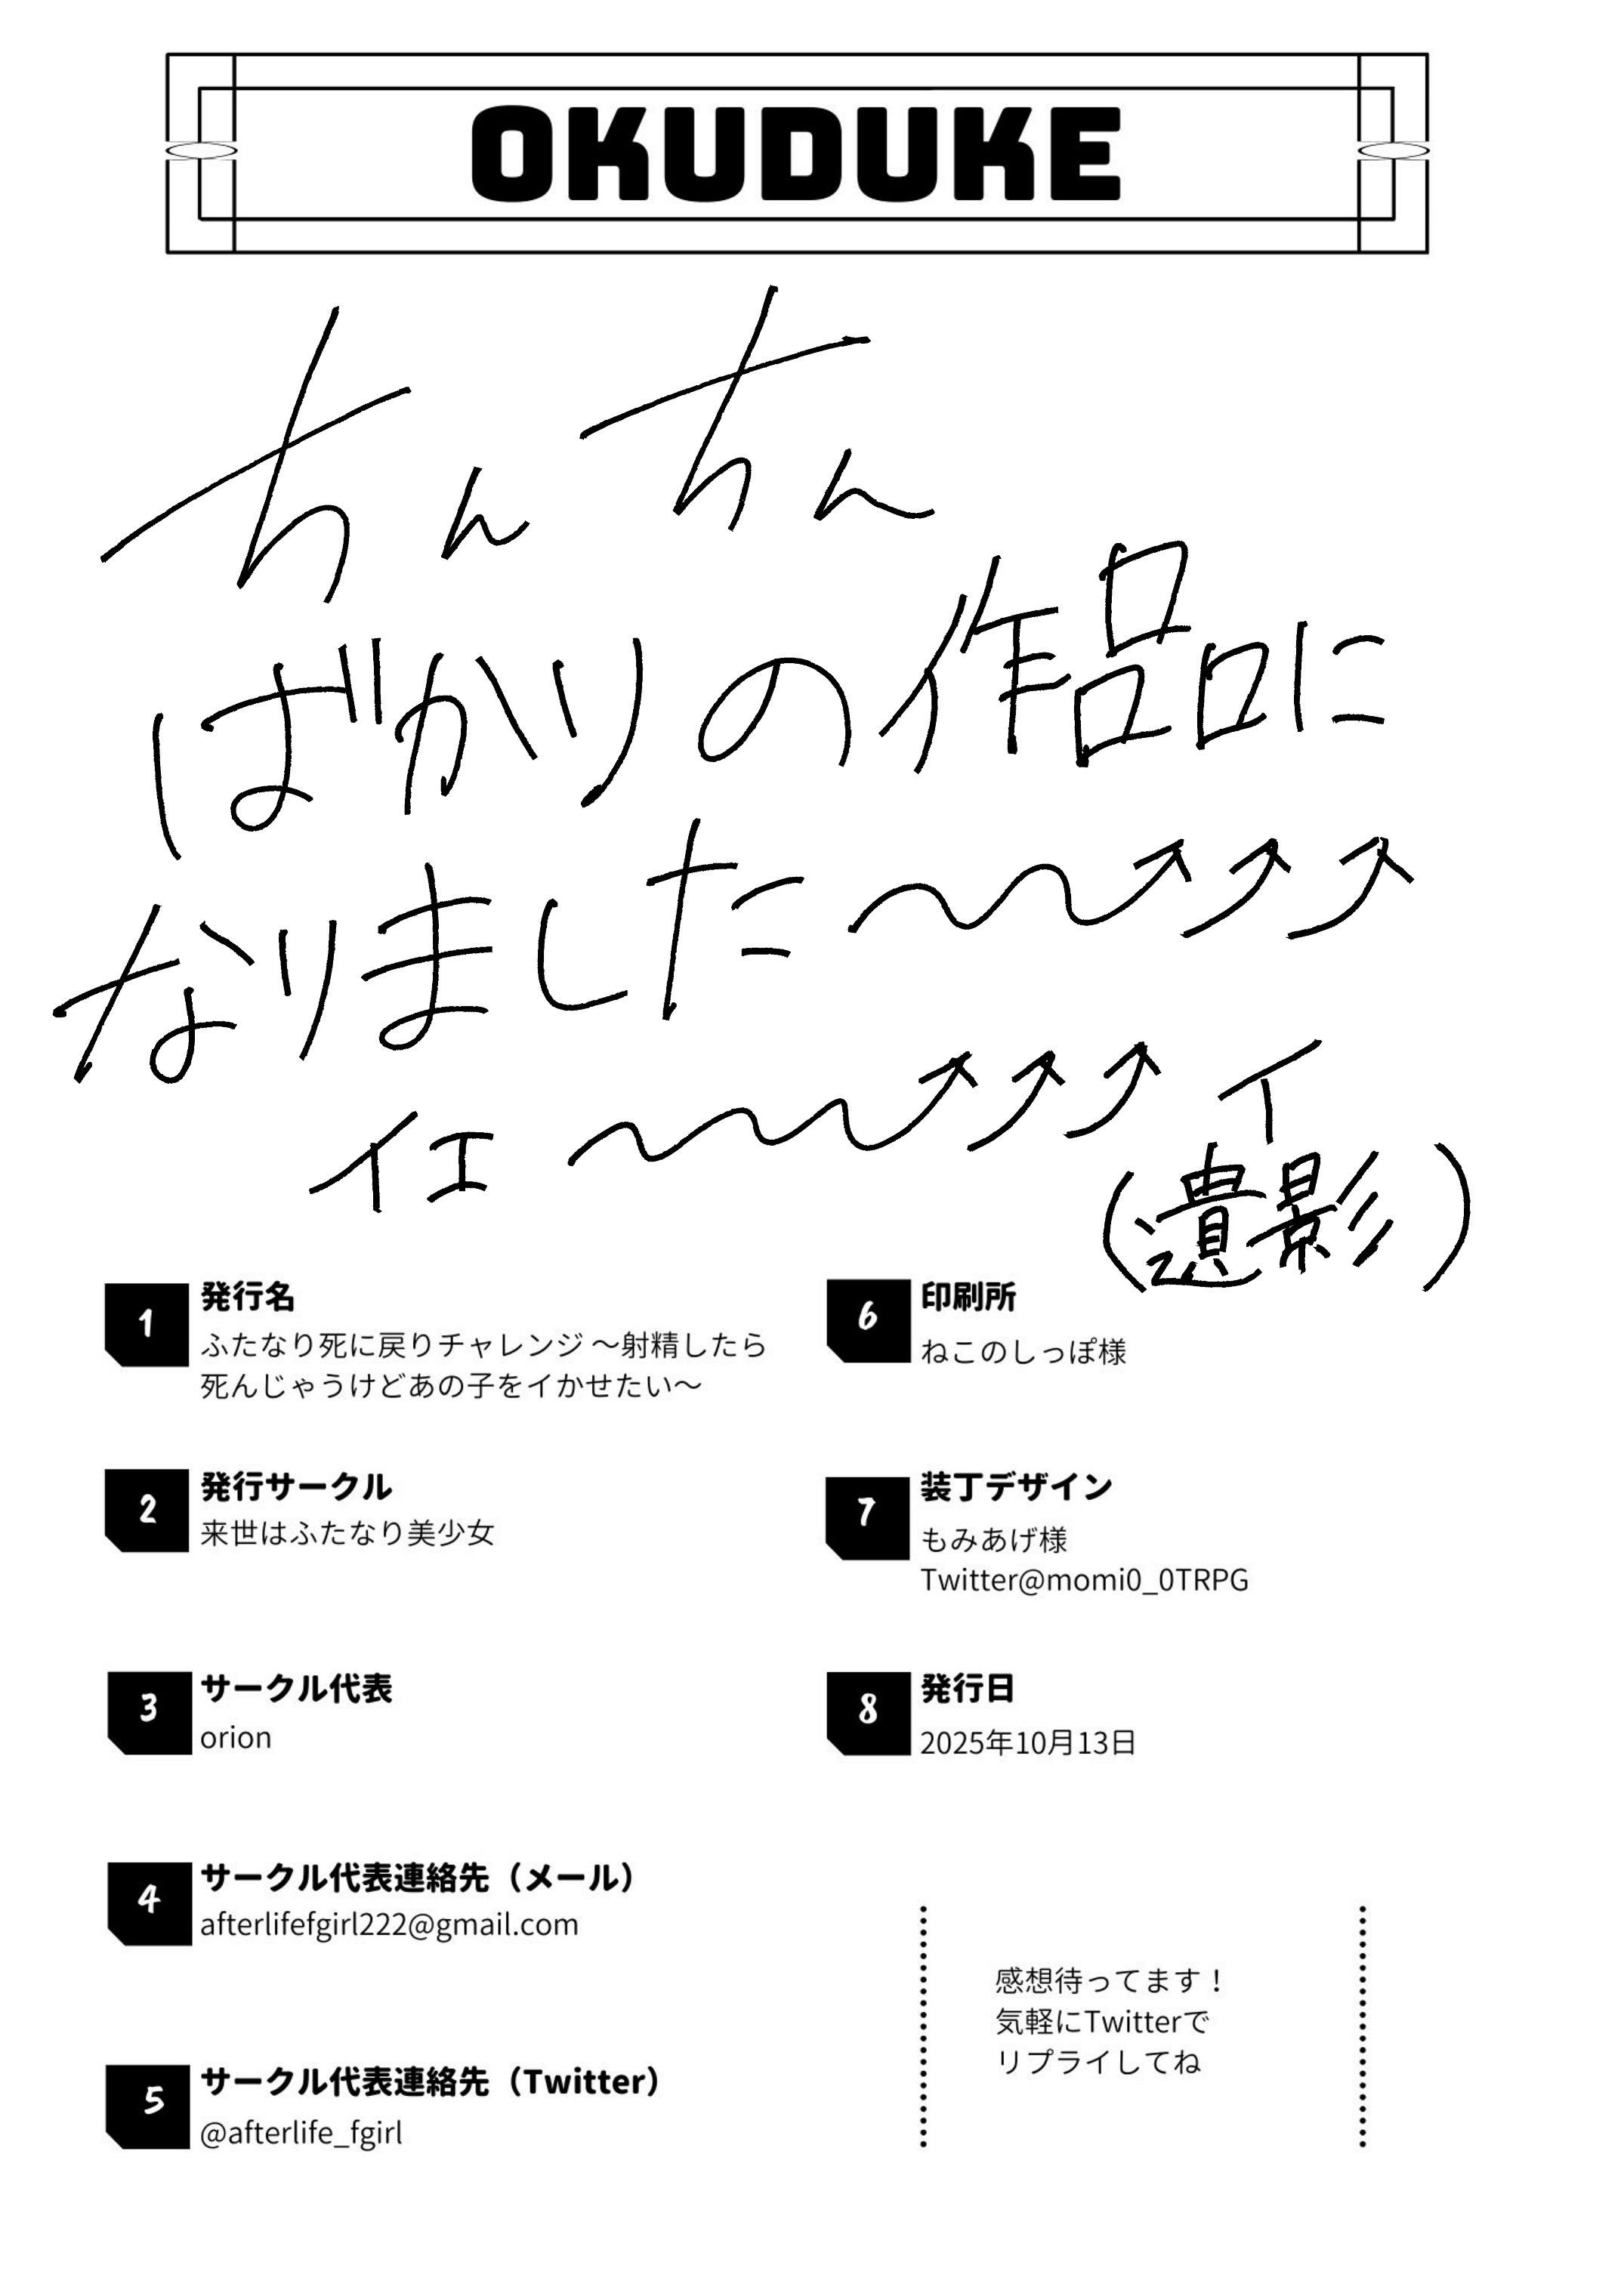 OKUDUKE
ちんちん
ばかりの作品に
なりました〜〜↑↑↑
イエ〜〜〜↑↑↑イ
(遺影)
1 発行名
ふたなり死に戻りチャレンジ 〜射精したら
死んじゃうけどあの子をイかせたい〜
2 発行サークル
来世はふたなり美少女
3 サークル代表
orion
4 サークル代表連絡先（メール）
afterlifefgirl222@gmail.com
5 サークル代表連絡先（Twitter）
@afterlife_fgirl
6 印刷所
ねこのしっぽ様
7 装丁デザイン
もみあげ様
Twitter@momi0_0TRPG
8 発行日
2025年10月13日
感想待ってます！
気軽にTwitterで
リプライしてね